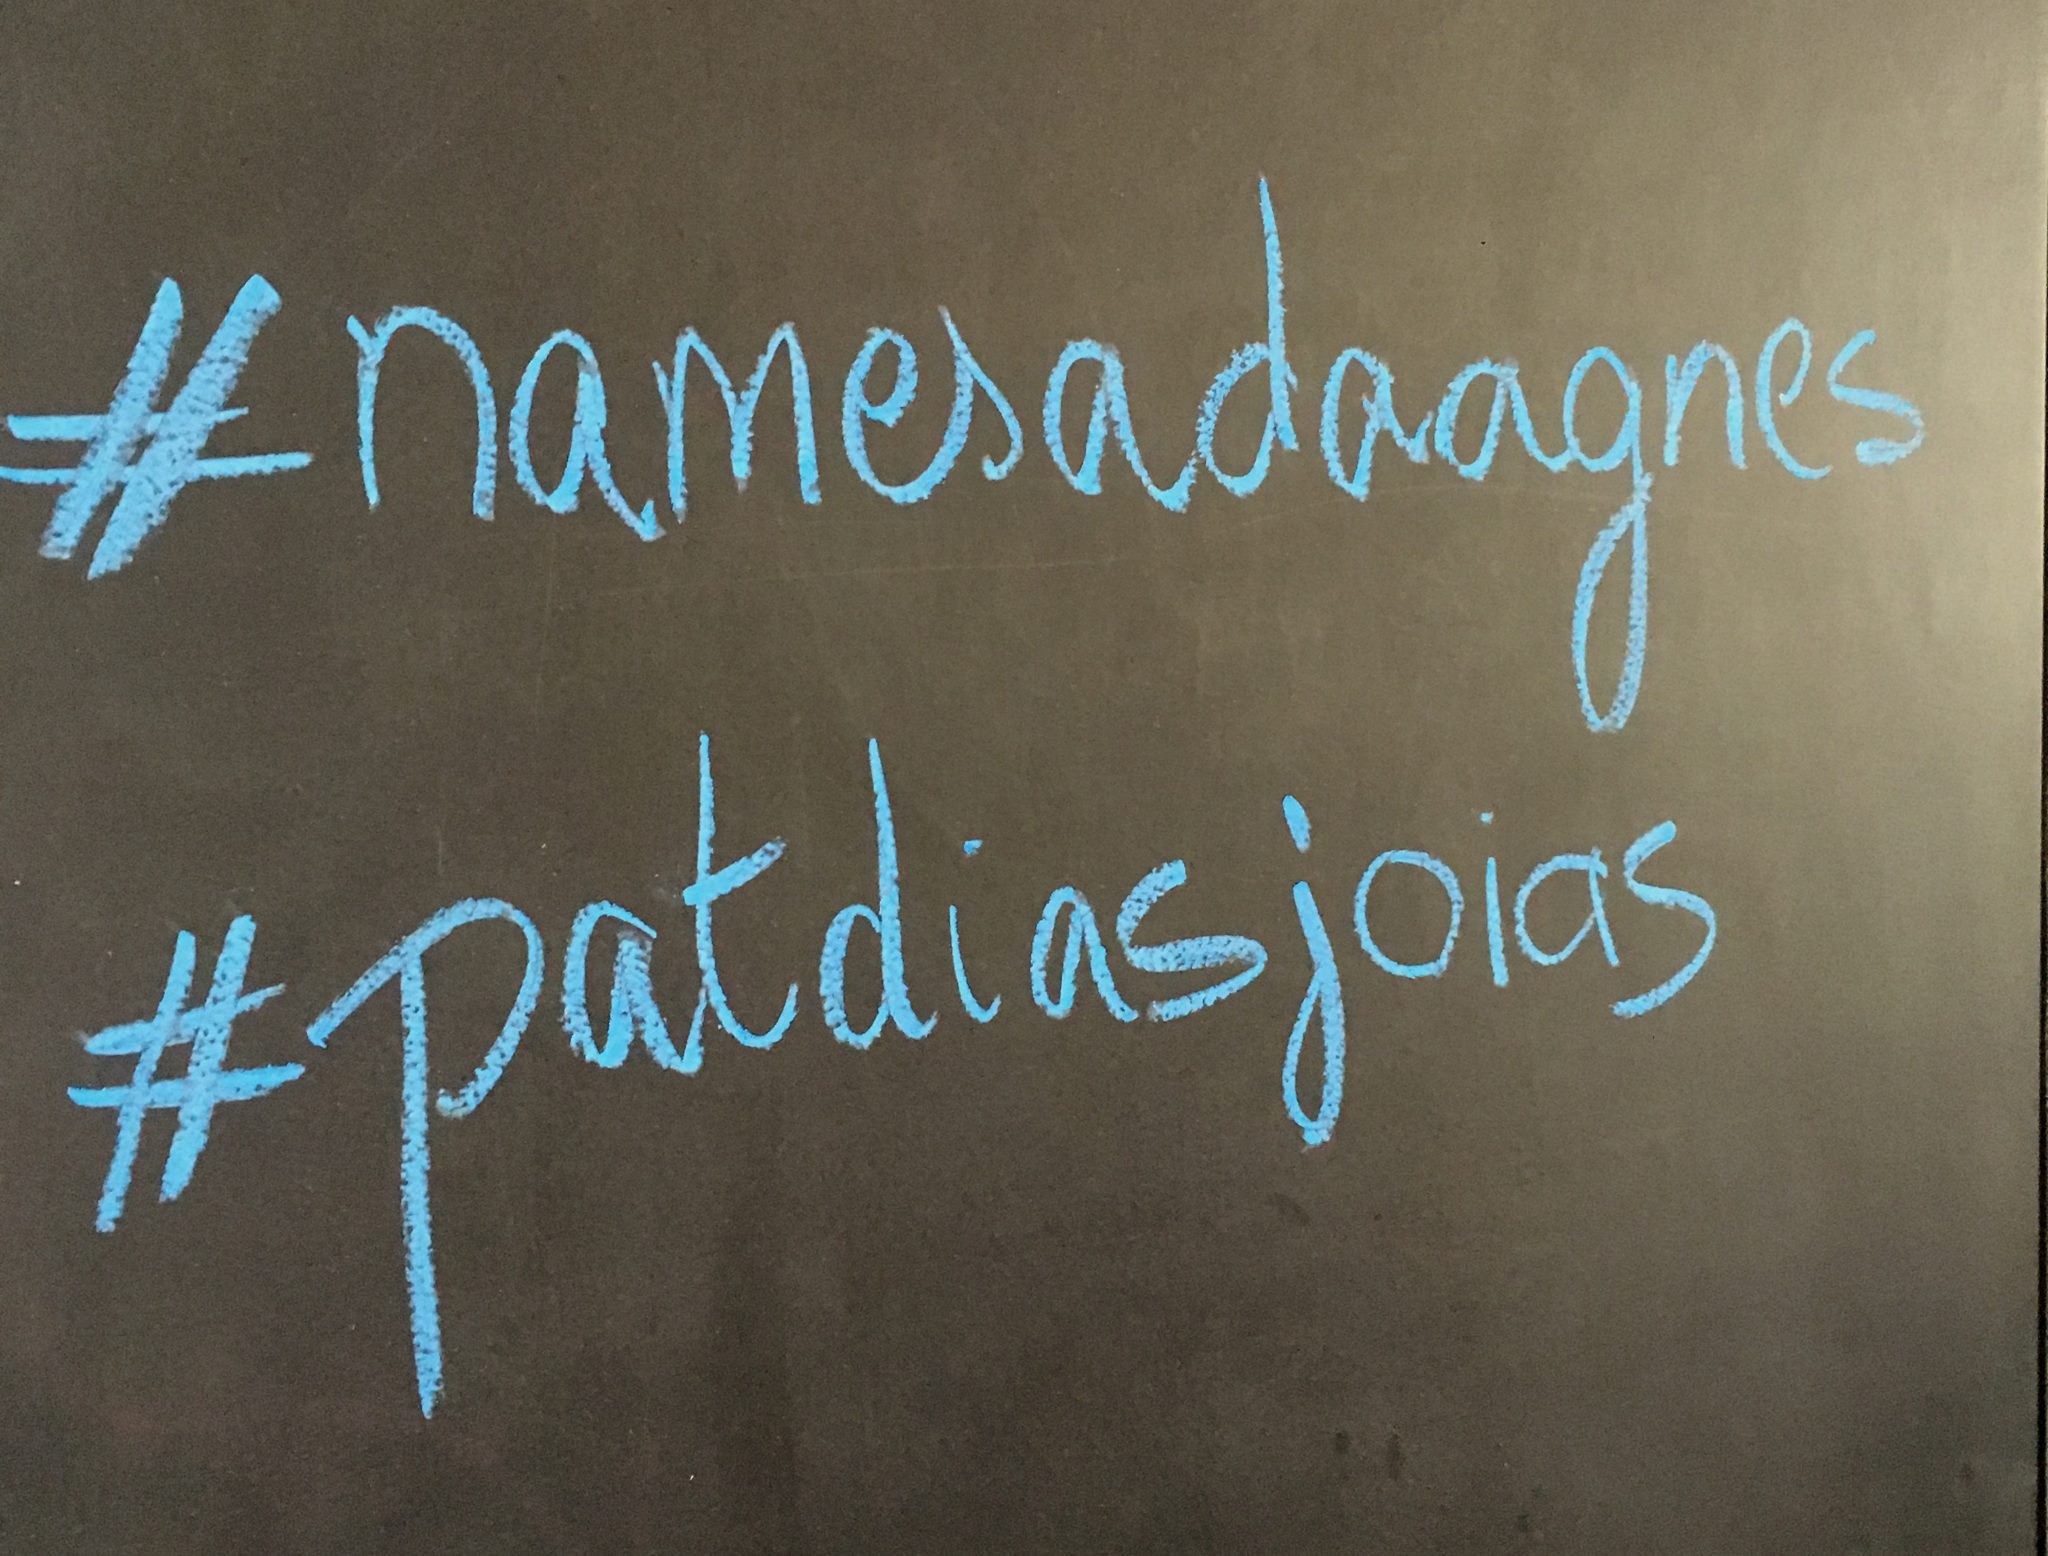 #namesadaagnes
#patdiasjoias